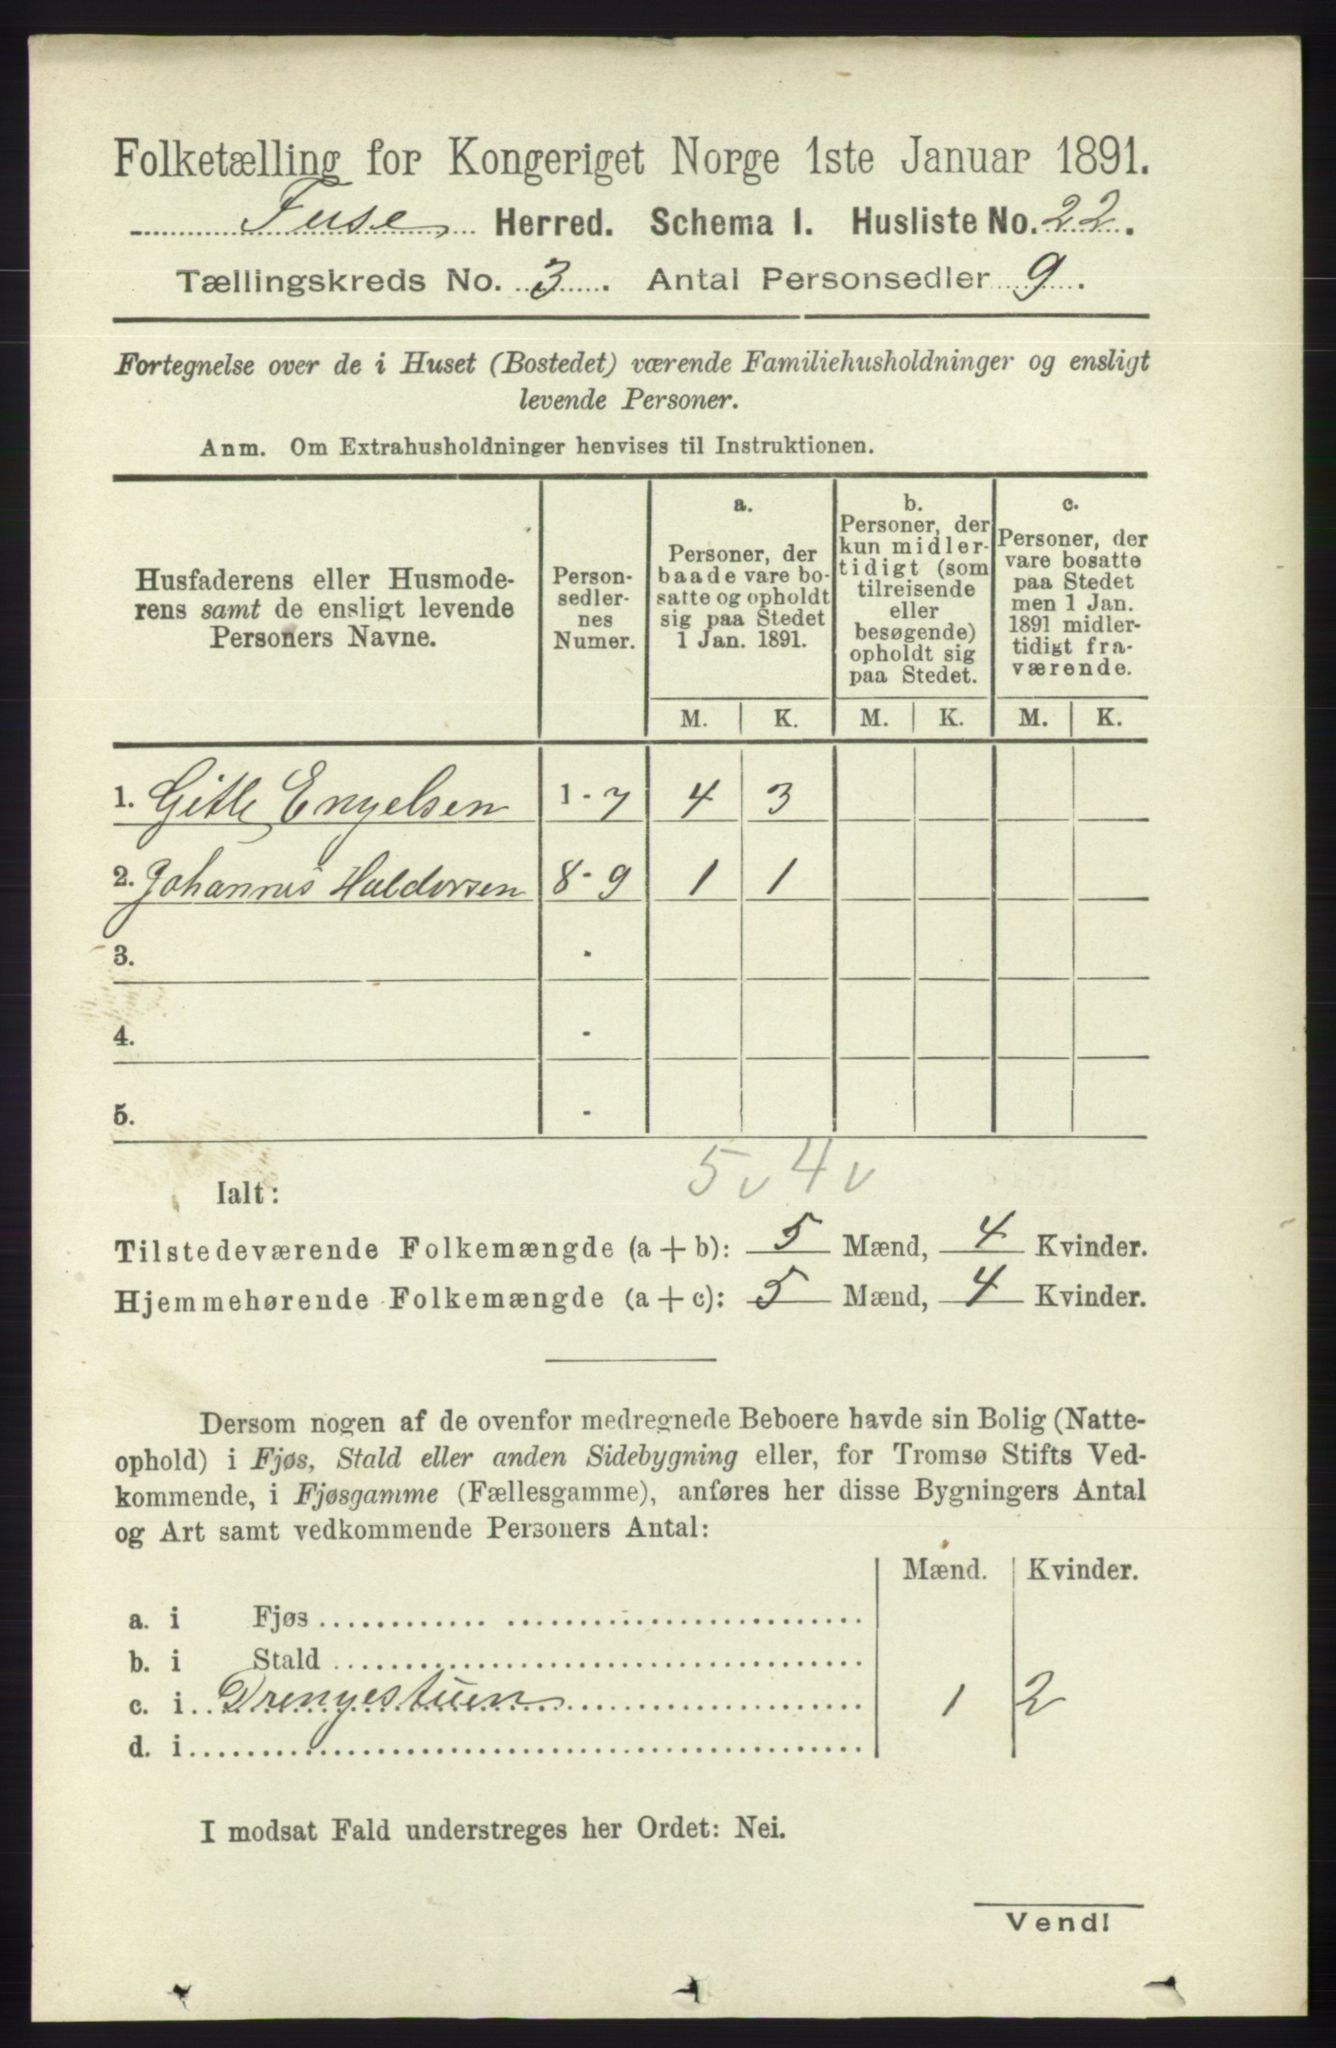 Folketælling for Kongeriget Norge 1ste Januar 1891.
Fuse Herred. Schema I. Husliste No. 22.
Tællingskreds No. 3. Antal Personsedler 9.
Fortegnelse over de i Huset (Bostedet) værende Familiehusholdninger og ensligt
levende Personer.
Anm. Om Extrahusholdninger henvises til Instruktionen.
Husfaderens eller Husmode-
rens samt de ensligt levende
Personers Navne.
Person-
sedler-
nes
Numer.
a.
Personer, der
baade vare bo-
satte og opholdt
sig paa Stedet
1 Jan. 1891.
b.
Personer, der
kun midler-
tidigt (som
tilreisende
eller
besøgende)
opholdt sig
paa Stedet.
c.
Personer, der
vare bosatte
paa Stedet
men 1 Jan.
1891 midler-
tidigt fra-
værende.
M. K. M. K. M. K.
1. Gitle Engelsen 1-7 4 3
2. Johannes Haldorsen 8-9 1 1
3. -
4. -
5. -
5 v 4 v
Ialt:
Tilstedeværende Folkemængde (a + b): 5 Mænd, 4 Kvinder.
Hjemmehørende Folkemængde (a + c): 5 Mænd, 4 Kvinder.
Dersom nogen af de ovenfor medregnede Beboere havde sin Bolig (Natte-
ophold) i Fjøs, Stald eller anden Sidebygning eller, for Tromsø Stifts Ved-
kommende, i Fjøsgamme (Fællesgamme), anføres her disse Bygningers Antal
og Art samt vedkommende Personers Antal:
Mænd. Kvinder.
a. i Fjøs
b. i Stald
c. i Drengestuen 1 2
d. i
I modsat Fald understreges her Ordet: Nei.
Vend!